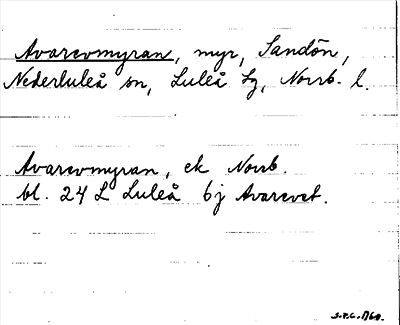 Avarevmyran, myr, Sandön,
Nederluleå sn, Luleå lg, Norrb. l.
Avarevmyran, ek Norrb.
bl. 24 L Luleå 6j Avarevet.